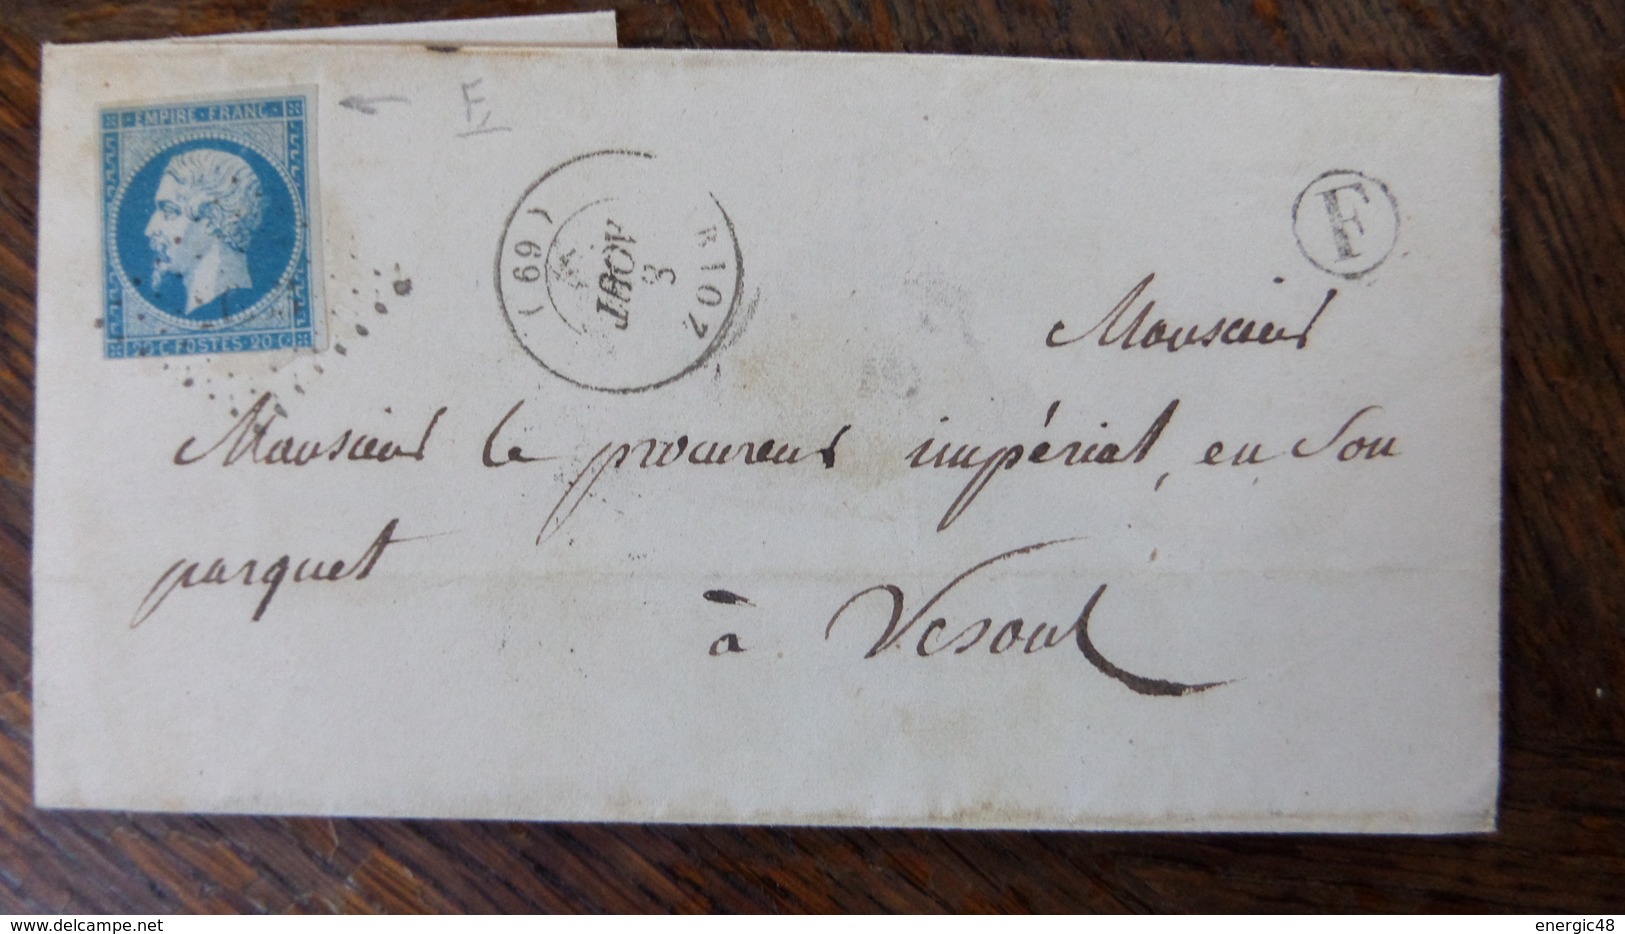 EMPIRE · FRANC ·
20 C · POSTES · 20 C
F
RIOZ
3
AOUT
(69)
F
Monsieur
Monsieur le procureur impérial, en son
parquet
à Vesoul
delcampe.net
energic48